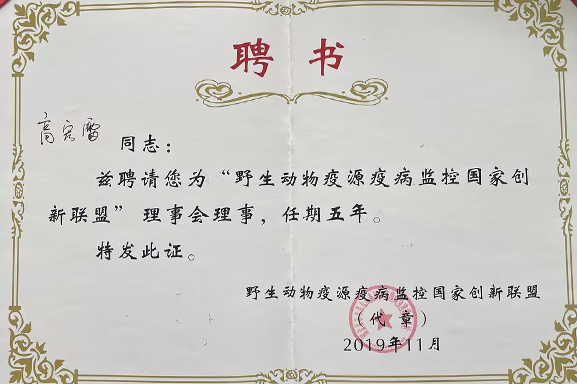 聘书
高宏雷 同志：
兹聘请您为“野生动物疫源疫病监控国家创
新联盟”理事会理事，任期五年。
特发此证。
野生动物疫源疫病监控国家创新联盟
（代章）
2019年11月